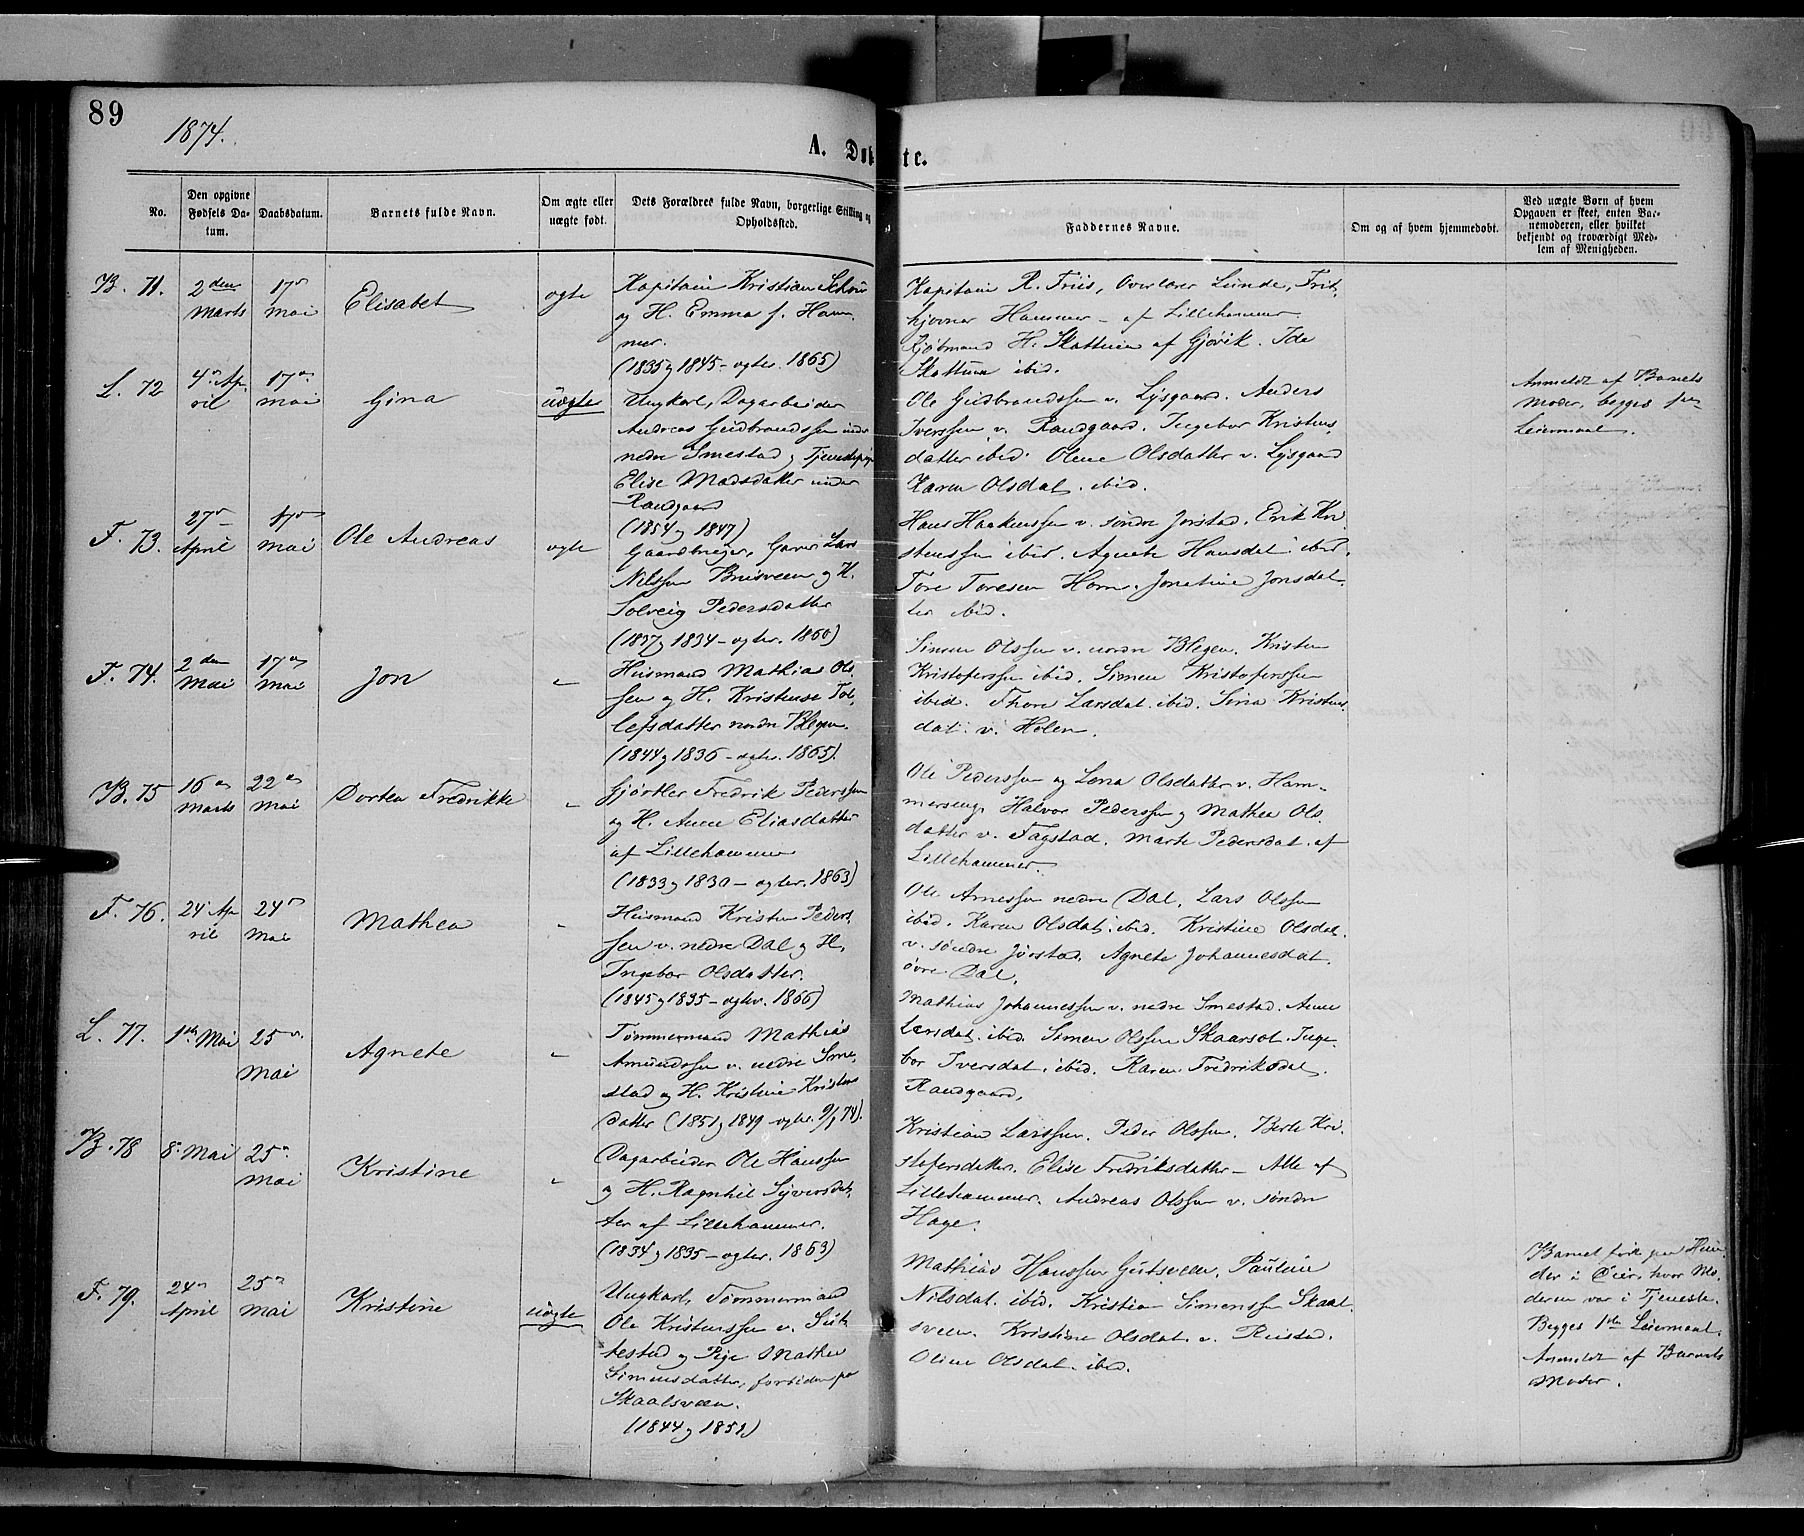 89
1874.
A. Døbte.
No.
Den opgivne Fødsels Da-
tum.
Daabsdatum.
Barnets fulde Navn.
Om ægte eller
uægte født.
Dets Forældres fulde Navn, borgerlige Stilling og
Opholdssted.
Faddernes Navne.
Om og af hvem hjemmedøbt.
Ved uægte Børn af hvem
Opgaven er skeet, enten Bar-
nemoderen, eller hvilket
bekjendt og troværdigt Med-
lem af Menigheden.
B. 71.
2den Marts
17de Mai
Elisabet
ægte
Kapitain Kristian Schou
og H. Emma f. Ham-
mer.
(1835 og 1845 - ægtev. 1865)
Kapitain R. Friis, Overlærer Lunde, Frit-
hjovner Hammer - af Lillehammer
Kjøbmand H. Skattum af Gjøvik. Ida
Skattum ibid.
L. 72
4de Ap-
ril
17de Mai
Gina
uægte
Ungkarl, Dagarbeider
Andreas Gudbrandssen under
nedre Smestad og Tjenestepige
Elise Madsdatter under
Randgaard
(1854 og 1847)
Ole Gudbrandssen v. Lysgaard. Anders
Iverssen v. Randgaard. Ingebor Kristens-
datter ibid. Olene Olsdatter v. Lysgaard
Karen Olsdat. ibid.
Anmeldt af Barnets
Moder, begges 1ste
Leiermaal.
F. 73.
27de April
17de Mai
Ole Andreas
ægte
Gaardbruger, Garver Lars
Nilssen Brusveen og H.
Solveig Pedersdatter
(1837 og 1834 - ægtev. 1860)
Hans Haakenssen v. søndre Jørstad. Erik Kri-
stenssen ibid. Agnete Hansdat. ibid.
Tore Toresen Horne. Jonetine Jonsdat-
ter ibid.
F. 74.
2den Mai
17de Mai
Jon
"
Husmand Mathias Ols-
sen og H. Kristense Tol-
lefsdatter nordre Blegen.
(1844 og 1836 - ægtev. 1865).
Simen Olssen v. nordre Blegen. Kristen
Kristoferssen ibid. Simen Kristoferssen
ibid. Thore Larsdat. ibid. Sina Kristens-
dat. v. Holen.
B. 75
16de Marts
22de Mai
Dortea Fredrikke
"
Gjørtler Fredrik Pederssen
og H. Anne Eliasdatter
af Lillehammer
(1833 og 1830 - ægtev. 1863)
Ole Pederssen og Lena Olsdatter v. Ham-
merseng, Halvor Pederssen og Mathea Ols-
datter v. Fagstad. Marte Pedersdat. af
Lillehammer.
F. 76.
24de Ap-
ril
24de Mai
Mathea
"
Husmand Kristen Peders-
sen v. nedre Dal og H.
Ingebor Olsdatter.
(1845 og 1835 - ægtev. 1866)
Ole Arnessen nedre Dal. Lars Olssen
ibid. Karen Olsdat. ibid. Kristine Olsdat.
v. søndre Jørstad. Agnete Johannesdat.
øvre Dal.
L. 77.
1ste Mai
25de Mai
Agnete
"
Tømmermand Mathias
Amundssen v. nedre Sme-
stad og H. Kristine Kristens-
datter (1851 og 1849 - ægtev. 9/1 74).
Mathias Johannessen v. nedre Smestad. Anne
Larsdat. ibid. Simen Olssen Skaarsol. Inge-
bor Iversdat. ibid. Karen Fredriksdat.
Randgaard.
B. 78
8de Mai
25de Mai
Kristine
"
Dagarbeider Ole Hanssen
og H. Ragnhil Syversdat-
ter af Lillehammer.
(1834 og 1835 - ægtev. 1863)
Kristian Larssen. Peder Olssen. Berte Kri-
stofersdatter. Elise Fredriksdatter - Alle af
Lillehammer. Andreas Olssen v. søndre
Hage.
F. 79.
24de April
25de Mai
Kristine
uægte
Ungkarl, Tømmermand
Ole Kristenssen v. Sut-
testad og Pige Mathea
Simensdatter, fortiden paa
Skaalsveen.
(1844 og 1851)
Mathias Hanssen Gutsveen. Pauline
Nilsdat. ibid. Kristian Simenssen Skaal-
sveen. Kristine Olsdat. v. Rustad.
Oline Olsdat. ibid.
Barnet født paa Hun-
der i Øier, hvor Mo-
deren var i Tjeneste.
Begges 1ste Leiermaal.
Anmeldt af Barnets
Moder.